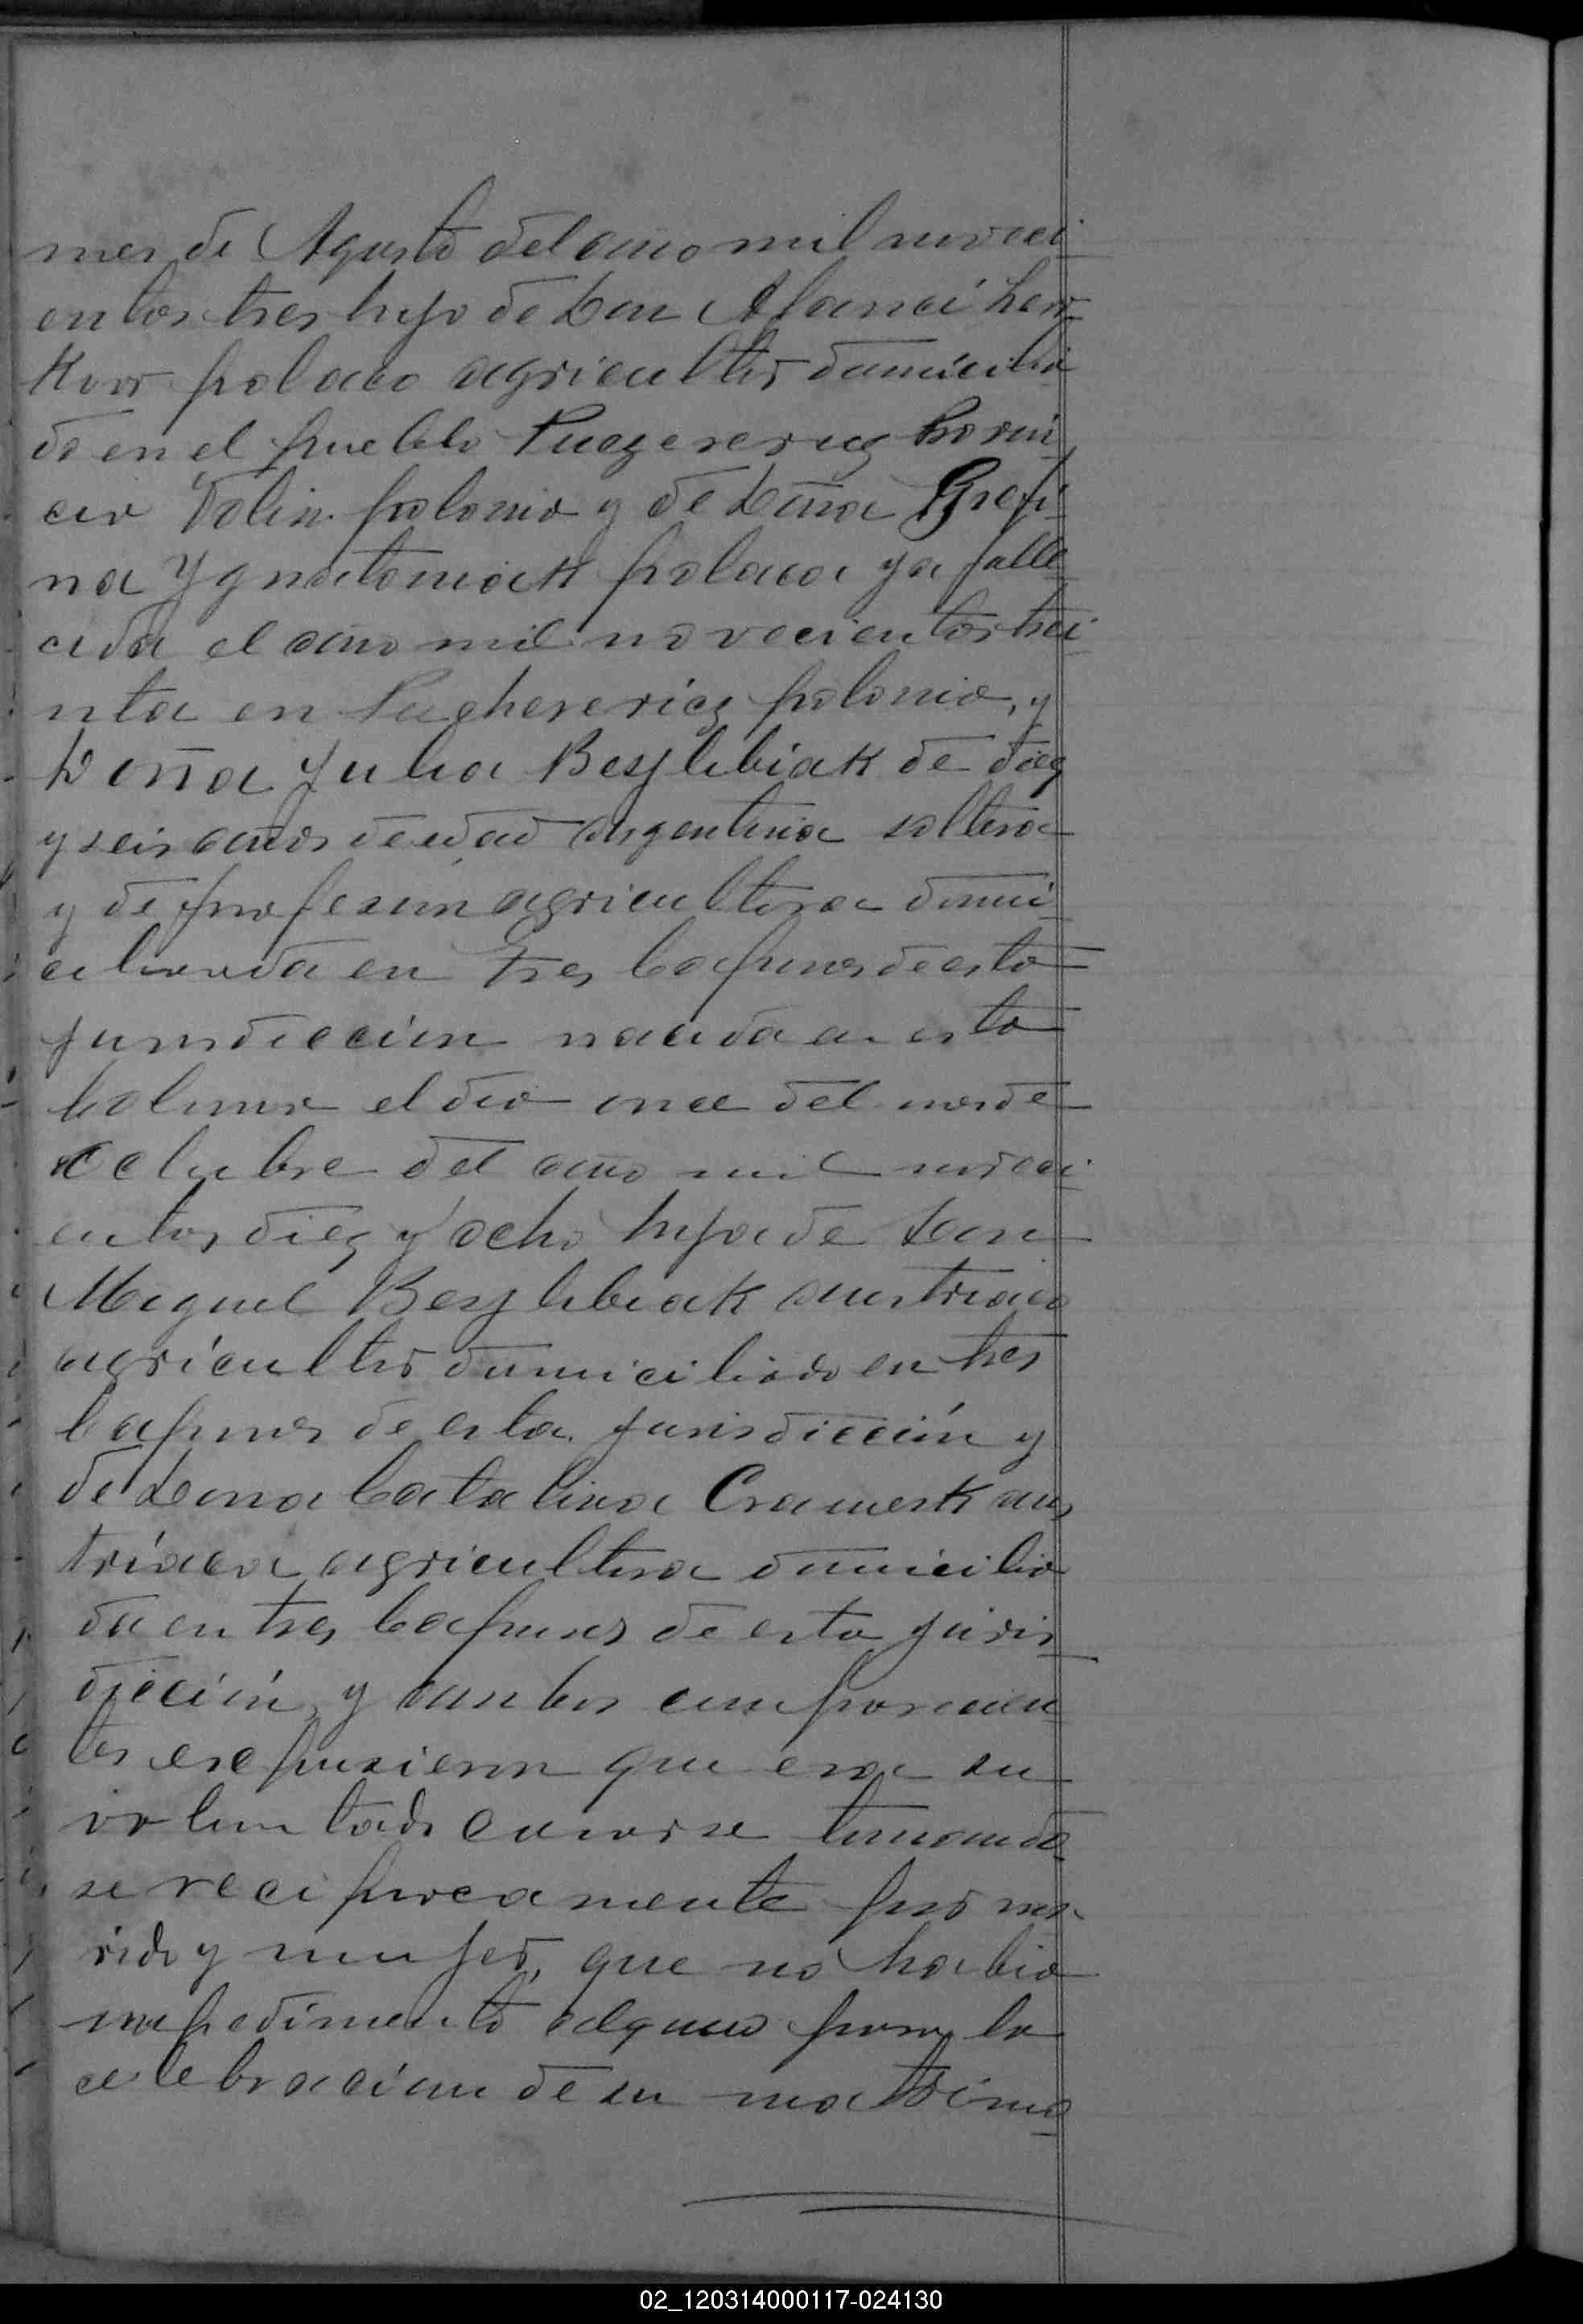 mes de Agosto del año mil noveci
entos tres hijo de Don Afanci Lew
Kow polaco agricultor domicilia
do en el pueblo Puezerericz Provin
cia Volin polonia y de Doña Grefi
na Ygnatoniak polaca ya falle
cida el año mil novecientos trei
nta en Pucherericz polonia, y
Doña Julia Besjlibiak de diez
y seis años de edad argentina soltera
y de profesion agricultora domi
ciliada en Tres Capones de esta
jurisdiccion nacida en esta
Colonia el dia once del mes de
Octubre del año mil noveci
entos diez y ocho hija de Don
Miguel Besjlibiak austriaco
agricultor domiciliado en tres
Capones de esta jurisdicción y
de Dona Catalina Cramesk aus
triaca agricultora domicilia
da en tres Capones de esta juris
dicción, y ambos comparecien
tes expusieron que era su
voluntad casarse tomando
se reciprocamente por ma
rido y mujer, que no habia
impedimento alguno para la
celebracion de su matrimo
02_120314000117-024130